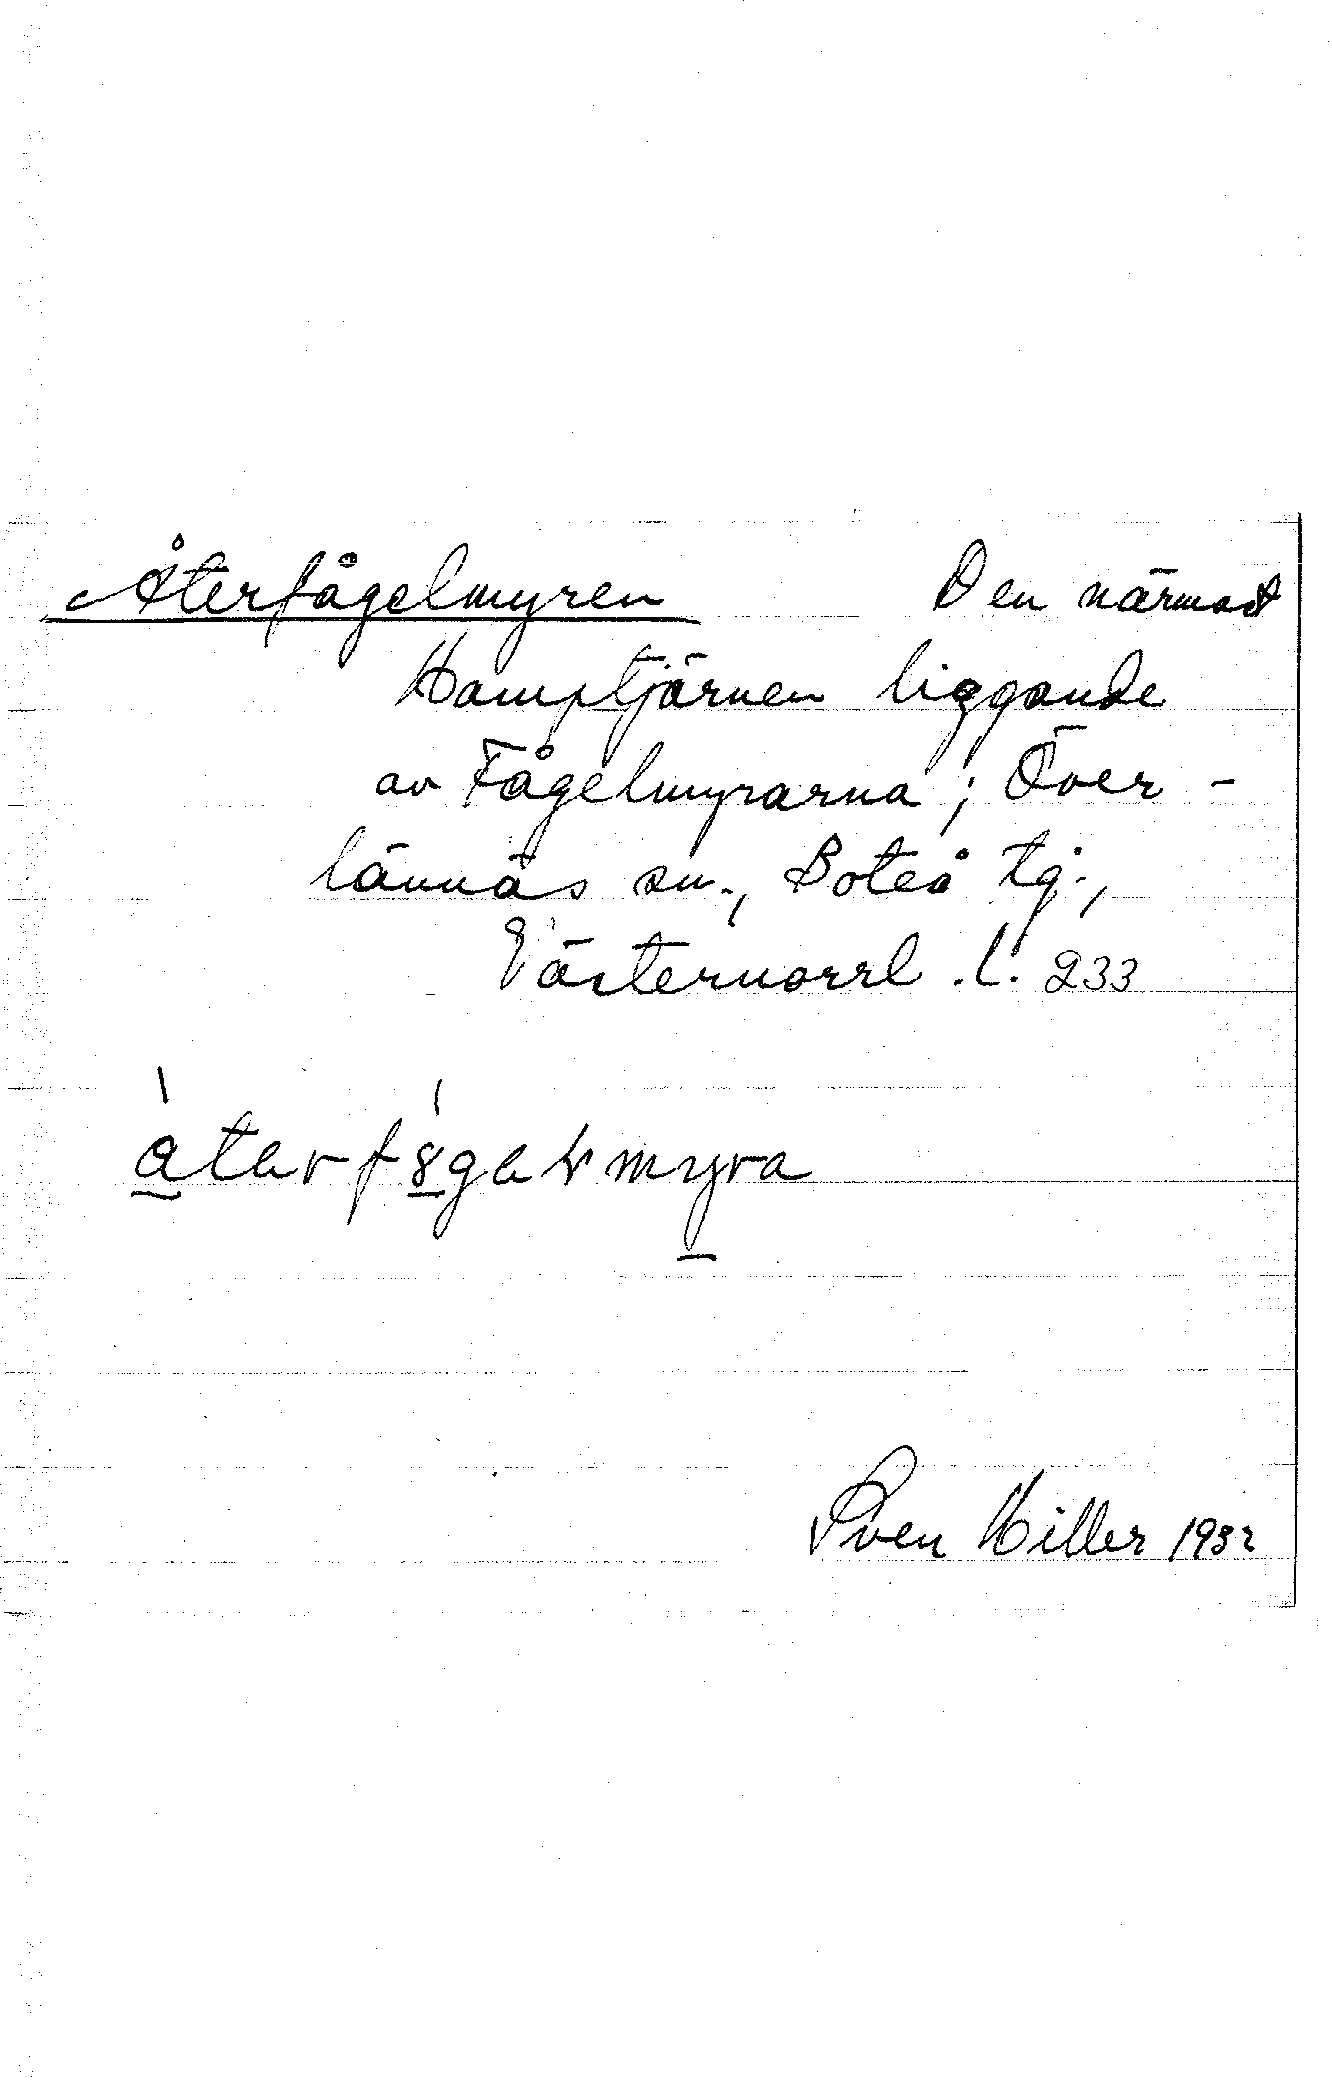 Återfågelmyren Den närmast
Hamptjärnen liggande
av Fågelmyrarna; Över-
lännäs sn., Boteå tg.,
Västernorrl. l. 233
åtərfȣgəlmyra
Sven Hiller 1932